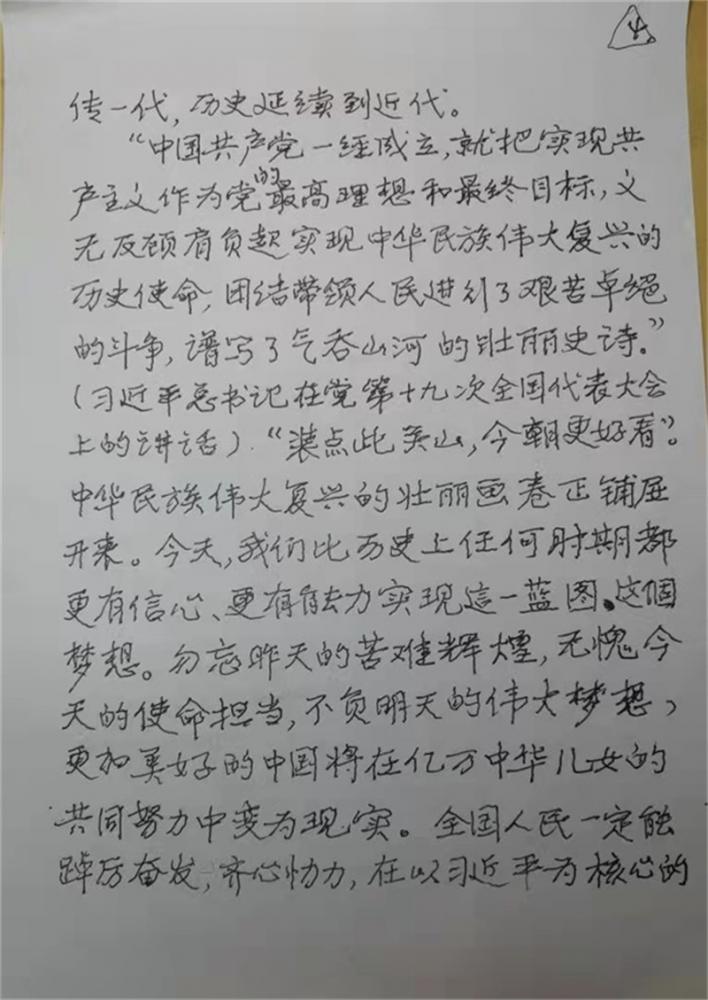 4
传一代，历史延续到近代。
“中国共产党一经成立，就把实现共
产主义作为党的最高理想和最终目标，义
无反顾肩负起实现中华民族伟大复兴的
历史使命，团结带领人民进行了艰苦卓绝
的斗争，谱写了气吞山河的壮丽史诗。”
（习近平总书记在党第十九次全国代表大会
上的讲话）．“装点此关山，今朝更好看”。
中华民族伟大复兴的壮丽画卷正铺展
开来。今天，我们比历史上任何时期都
更有信心、更有能力实现這一蓝图。这個
梦想。勿忘昨天的苦难辉煌，无愧今
天的使命担当，不负明天的伟大梦想，
更加美好的中国将在亿万中华儿女的
共同努力中变为现实。全国人民一定能
踔厉奋发，齐心协力，在以习近平为核心的